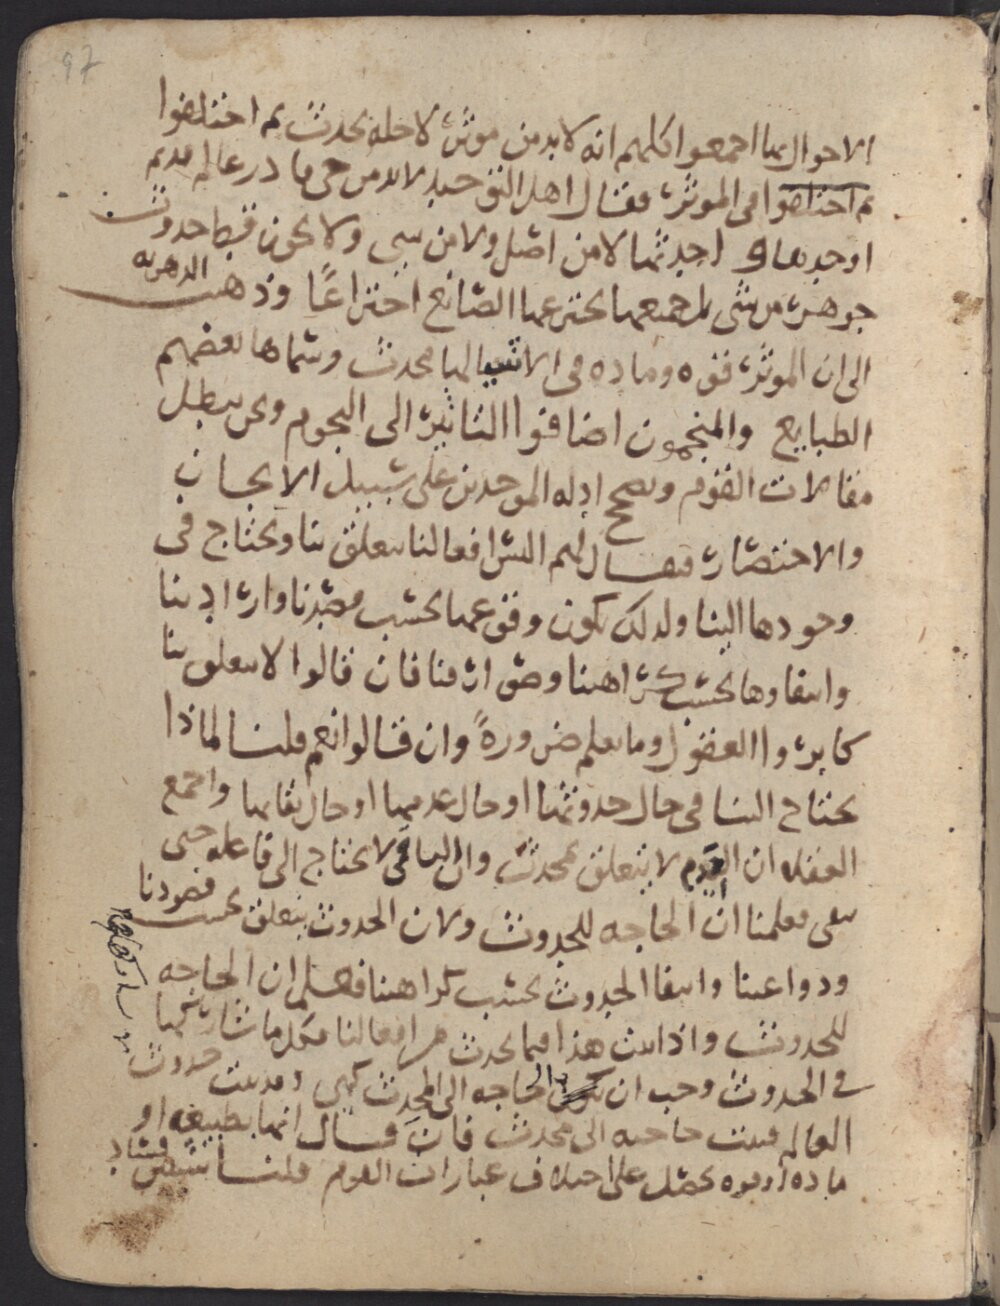 97
الاحوال بما اجمعوا كلهم انه لا بد من موثر لاجله يحدث ثم اختلفوا
ثم اختلفوا في الموثر فقال اهل التوحيد لابد من حي قادر عالم قديم
اوجدها و احدثها لا من اصل ولا من شي ولا يجوز قط حدوث
جوهر من شي بل جميعها يخترعها الصانع اختراعًا وذهب الدهريه
الى ان الموثر قوه وماده في الاشيا لها يحدث وسماها بعضهم
الطبايع والمنجمون اضافوا التاثير الى النجوم ونحن نبطل
مقالات القوم ونصحح ادله الموحدين على سبيل الايجاز
والاختصار فيقال لهم اليس افعالنا يتعلق بنا ويحتاج في
وجودها الينا ولذلك يكون وقوعها بحسب قصدنا وارادتنا
وانتفاوها بحسب كراهتنا وصوارفنا فان قالوا لا يتعلق بنا
كابروا العقول وما يعلم ضرورةً وان قالوا نعم قلنا لماذا
يحتاج الينا في حال حدوثها او حال عدمها او حال بقايها واجمع
العقلا ان القدم لا يتعلق بمحدث وان الباقي لا يحتاج الى فاعله حتى
يبقى فعلمنا ان الحاجه للحدوث ولان الحدوث يتعلق بحسب قصودنا
ودواعينا وانتفا الحدوث بحسب كراهتنا فعلم ان الحاجه
للحدوث واذا ثبت هذا فيما يحدث من افعالنا فكل ما شاركها
في الحدوث وجب ان الحاجه الى المحدث كهي وقد ثبت حدوث
العالم فيثبت حاجته الى محدث فان قال انها بطبيعه او
ماده او قوه يحصل على اختلاف عبارات القوم قلنا